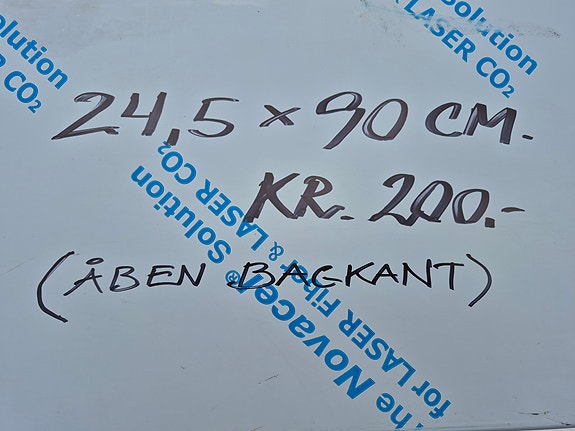 olution
R CO₂
Solution
LASER CO₂
24,5 × 90 CM.
KR. 200.-
(ÅBEN BACKANT)
The Novacel® Solution
for LASER Fiber & LASER CO₂